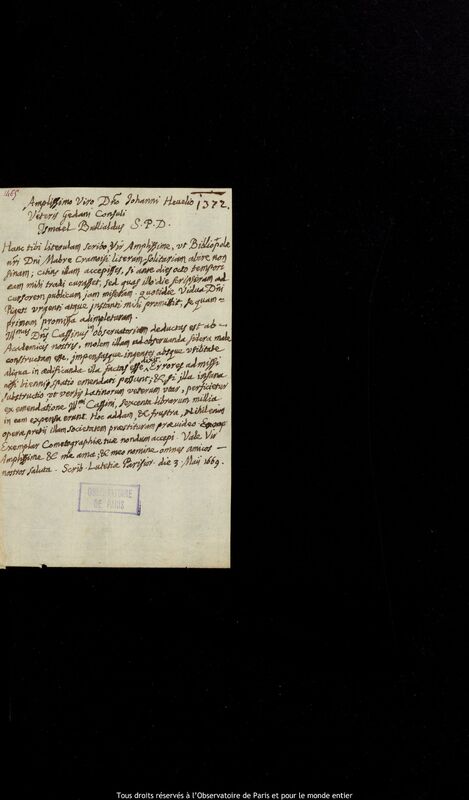 1465
1372.
Amplissimo Viro Dno Johanni Hevelio
Veteris Gedani Consuli
Ismael Bullialdus S. P. D.
Hanc tibi literulam scribo, Vir Amplissime, ut Bibliopolæ
nri Dni Mabre Cramoisi literam solitariam abire non
sinam; citius illam accepisses, si ante dies octo tempore
eam mihi tradi curasset, sed quas illo die scripseram ad
cursorem publicum jam miseram. quotidie Vidua Dni
Pigeti urgenti atque instanti mihi promittit, se quam-
primum promissa adimpleturam.
Illmus Dnus Cassinus in observatorium deductus est ab
Academicis nostris, molem illam ad observanda sidera male
constructam esse, impensasque ingentes absque utilitate
aliqua in ædificanda illa factas esse dixit. Errores admissi
nisi biennij spatio emendari possunt; & si illa insana
substructio ut verbis Latinorum veterum utar, perficietur
ex emendatione Illmi Cassini, sexcenta librarum millia
in eam expensa erunt. Hoc addam, & frustra, & nihilenim
operæ pretij illam societatem præstituram prævideo.
Exemplar Cometographiæ tuæ nondum accepi. Vale Vir
Amplissime & me ama, & meo nomine omnes amicos
nostros saluta. Scrib. Lutetiæ Parisior. die 3. Maij 1669.
OBSERVATOIRE
DE PARIS
Tous droits réservés à l'Observatoire de Paris et pour le monde entier